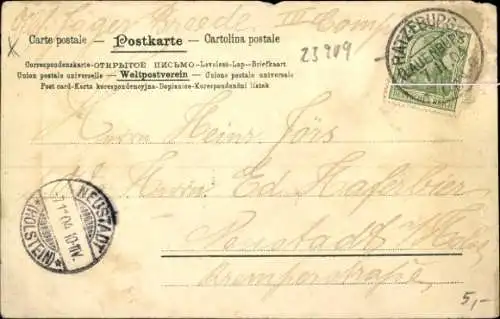 Jäger Breede III Comp
Carte postale – Postkarte – Cartolina postale
Correspondenzkarte–ОТКРЫТОЕ ПИСЬМО–Levelező-Lap–Briefkaart
Union postale universelle – Weltpostverein – Unione postale universale
Post card–Karta korespondencyjna–Dopisnice–Korespondenční lístek
23909
RATZEBURG
(LAUENBURG)
Herrn Heinr. Jörs
Herrn Ed. Haferbier
Neustadt
Kremperstraße
NEUSTADT
(HOLSTEIN)
5,-